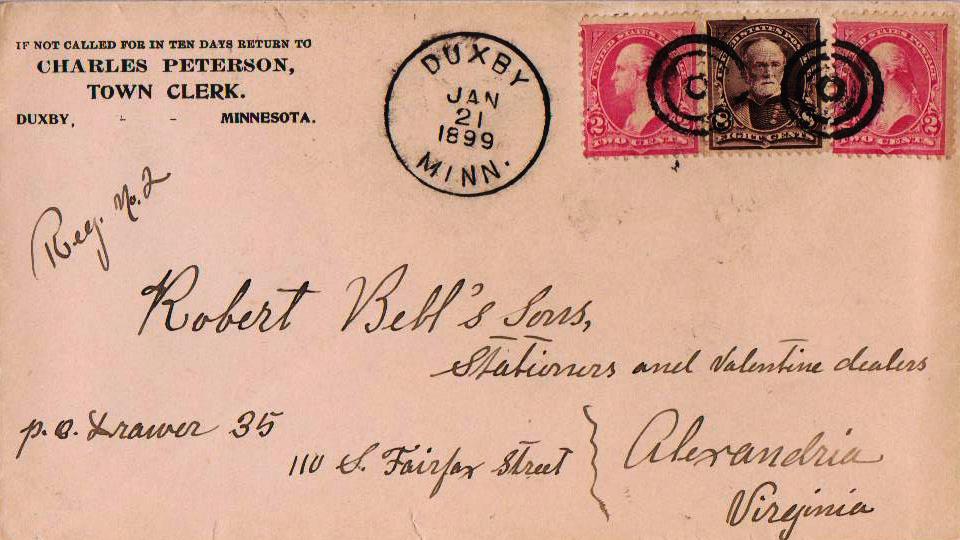 IF NOT CALLED FOR IN TEN DAYS RETURN TO
CHARLES PETERSON,
TOWN CLERK.
DUXBY, - - MINNESOTA.
DUXBY
JAN
21
1899
MINN.
UNITED STATES POSTAGE
2 2
TWO CENTS
UNITED STATES POSTAGE
8
EIGHT CENTS
STATES POSTAGE
2
TWO CENTS
Reg. No. 2
Robert Bell's Sons,
Stationers and Valentine dealers
P.O. Drawer 35
110 S. Fairfax Street
Alexandria
Virginia